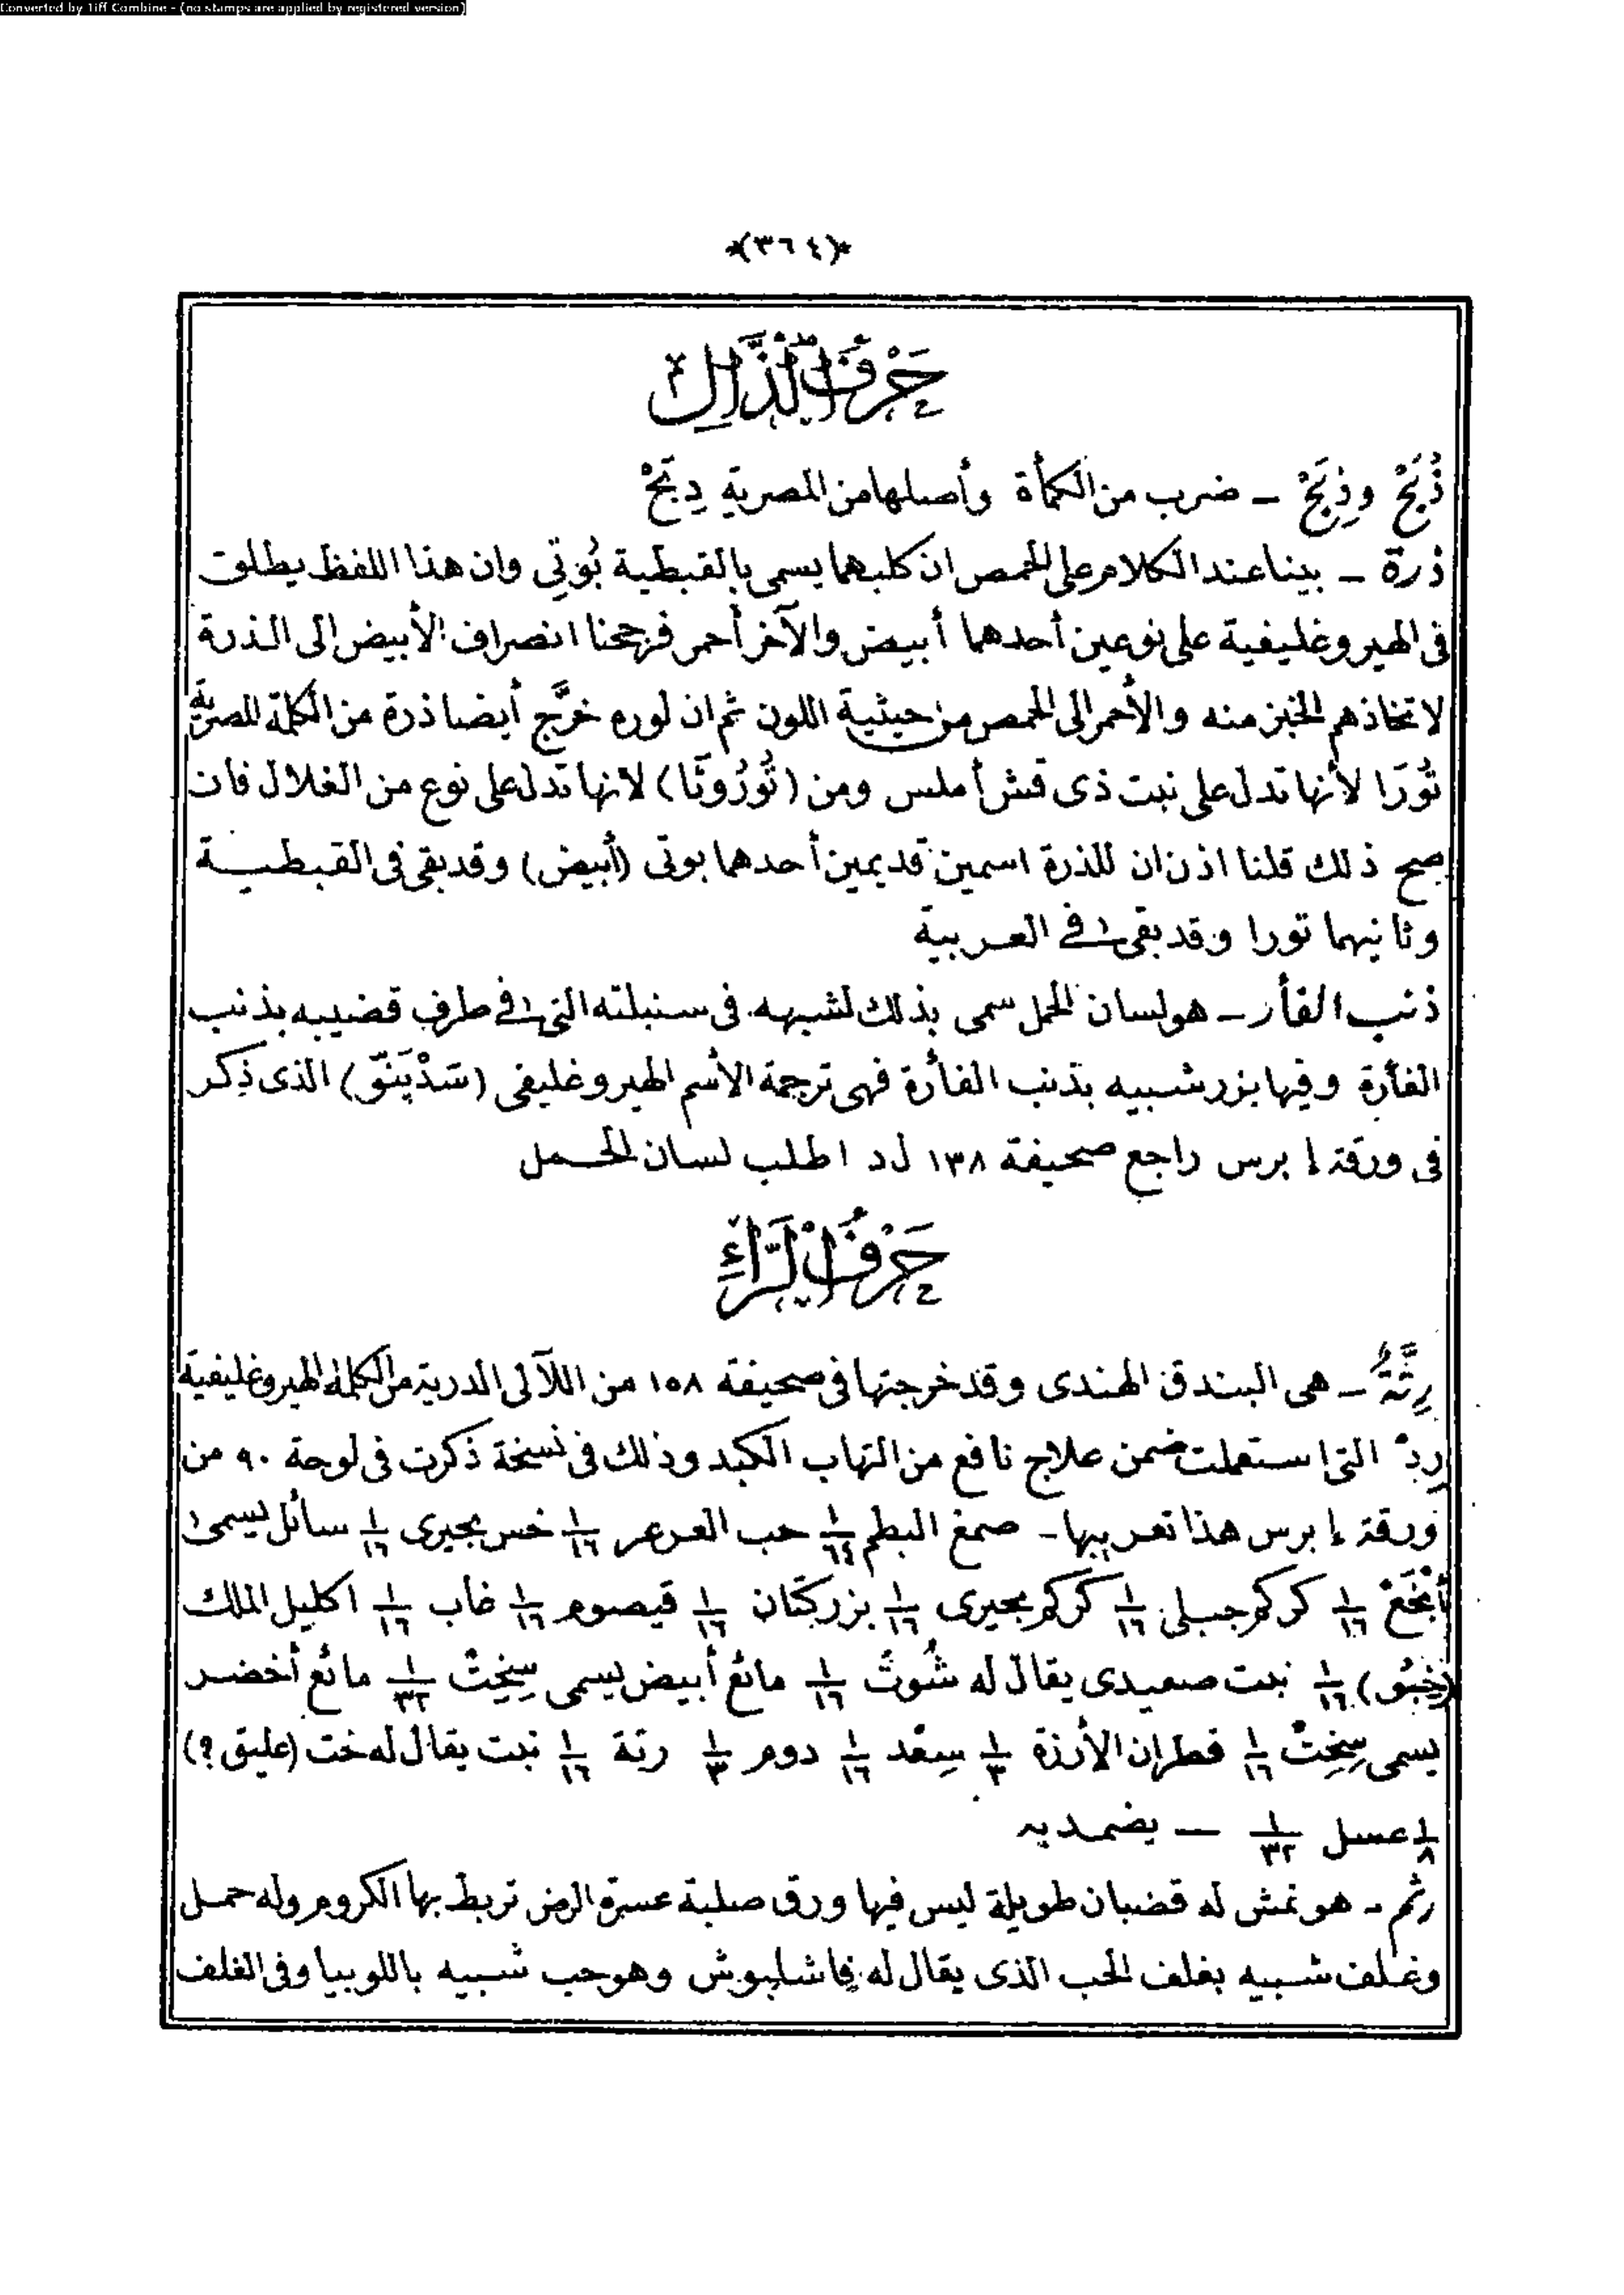 Converted by Tiff Combine - (no stamps are applied by registered version)
*(٣٦٤)*
حَرْفُ الذَّالِ
ذُبَحْ وذِبَحْ ــ ضرب من الكمأة وأصلها من المصرية دِبَحْ
ذرة ــ بينا عند الكلام على الحمص ان كليهما يسمى بالقبطية بُوتِى وان هذا اللفظ يطلق
فى الهيروغليفية على نوعين أحدهما أبيض والآخر أحمر فرجحنا انصراف الأبيض الى الذرة
لاتخاذهم الخبز منه والأحمر الى الحمص من حيثية اللون ثم ان لوره خرَّج أيضا ذرة من الكلمة المصرية
تُورَا لأنها تدل على نبت ذى قش أملس ومن (تُورُوتَا) لانها تدل على نوع من الغلال فان
صح ذلك قلنا اذن ان للذرة اسمين قديمين أحدهما بوتى (أبيض) وقد بقى فى القبطية
وثانيهما تورا وقد بقى فى العربية
ذنب الفأر ــ هو لسان الحمل سمى بذلك لشبهه فى سنبلته التى فى طرف قضيبه بذنب
الفأرة وفيها بزر شبيه بذنب الفأرة فهى ترجمة الأسم الهيروغليفى (سَدْپَنَّوْ) الذى ذِكر
فى ورقة إبرس راجع صحيفة ١٣٨ ل د اطلب لسان الحمل
حَرْفُ الرَّاءِ
رِتَّةٌ ــ هى البندق الهندى وقد خرجتها فى صحيفة ١٥٨ من اللآلى الدرية من الكلمة الهيروغليفية
رِدْ التى استعملت ضمن علاج نافع من التهاب الكبد وذلك فى نسخة ذكرت فى لوحة ٩٠ من
ورقة إبرس هذا تعريبها ــ صمغ البطم ١/٦٤ حب العرعر ١/١٦ خس بحيرى ١/١٦ سائل يسمى
١/١٦ كركم جبلى ١/١٦ كركم بحيرى ١/١٦ بزر كتان ١/١٦ قيصوم ١/١٦ غاب ١/١٦ اكليل الملك
١/١٦ نبت صعيدى يقال له شُوتْ ١/١٦ مائع أبيض يسمى سِخِتْ ١/٣٢ مائع أخضر
يسمى سِخِتْ ١/١٦ قطران الأرزة ١/٣ سِعْد ١/١٦ دوم ١/٣ رتة ١/١٦ نبت يقال له خت (عليق ؟)
١/٨ عسل ١/٣٢ ــ يضمد به
رتم ــ هو تمش له قضبان طويلة ليس فيها ورق صلبة عسرة الرض تربط بها الكروم وله حمل
وغلف شبيه بغلف الحب الذى يقال له فاشليوش وهو حب شبيه باللوبيا وفى الغلف